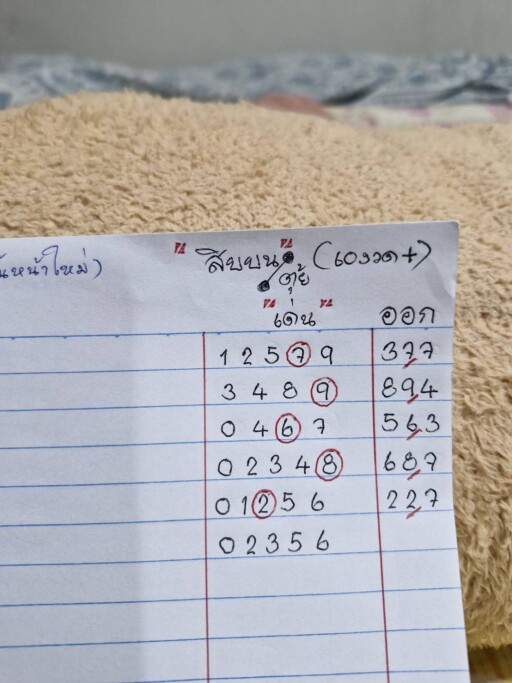 สิบบน (60งวด+)
นหน้าใหม่)
ตุ้ย
เด่น ออก
1 2 5 7 9 377
3 4 8 9 894
0 4 6 7 563
0 2 3 4 8 687
0 1 2 5 6 227
0 2 3 5 6